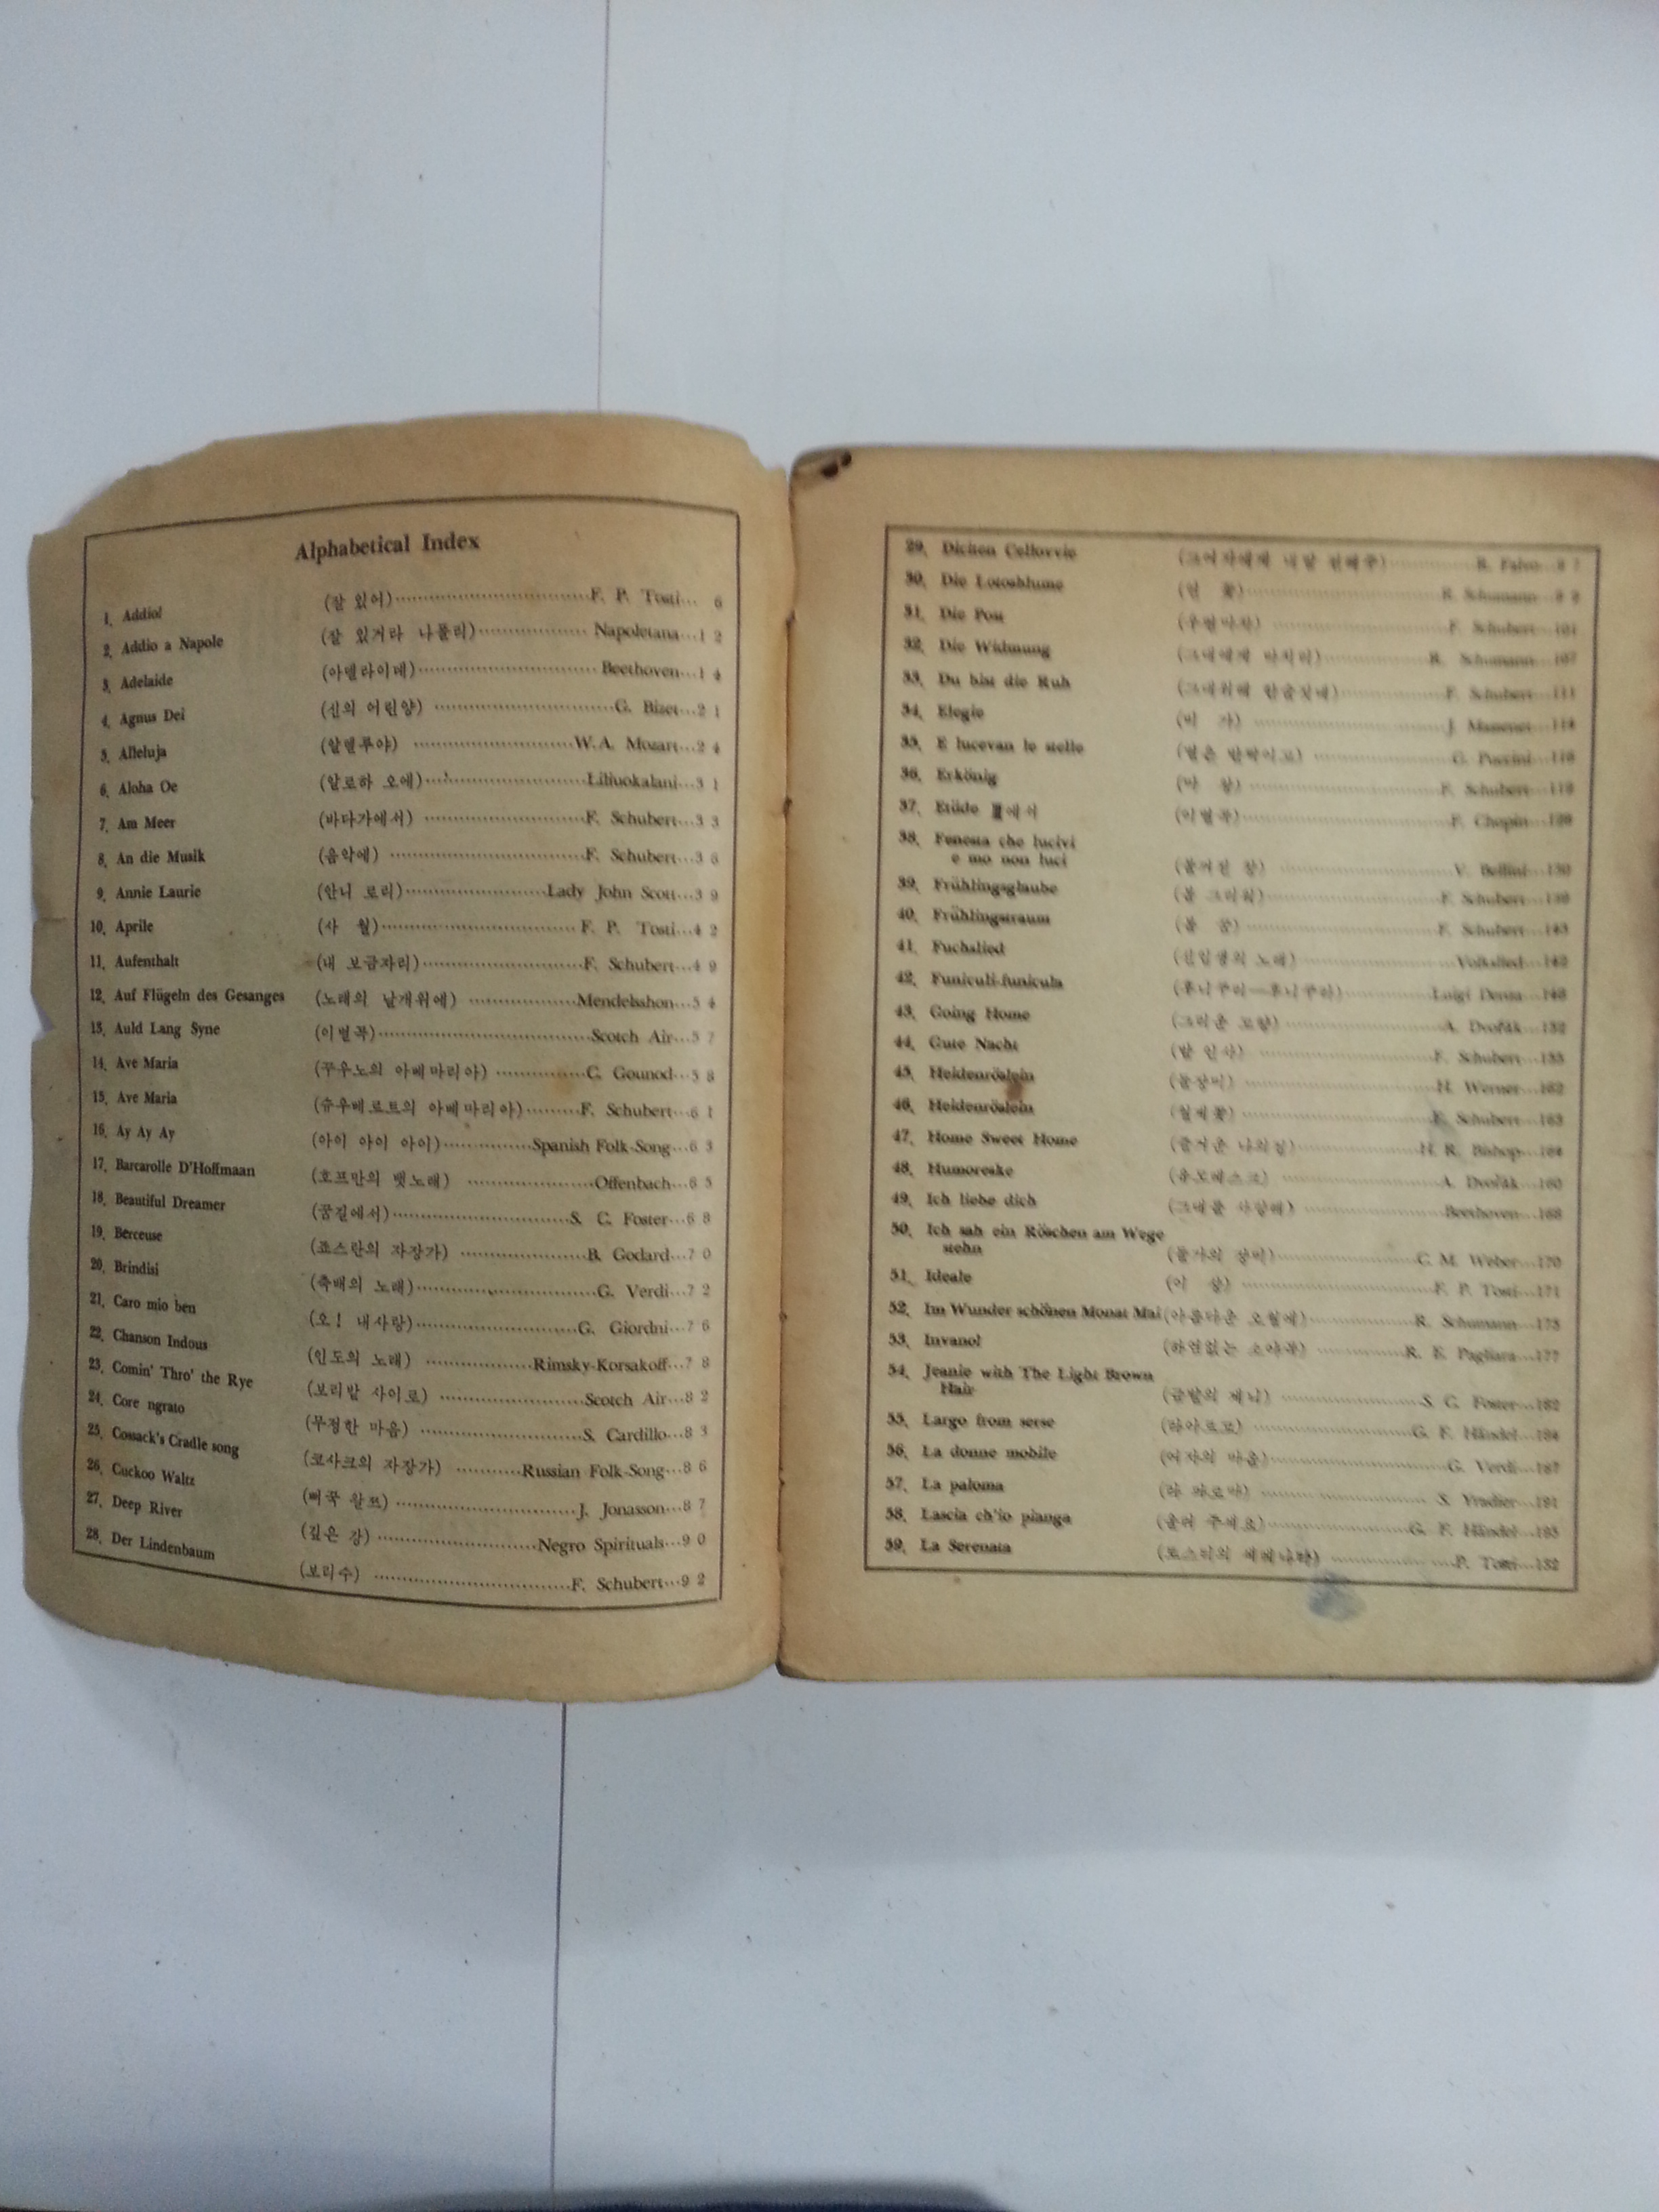 Alphabetical Index
1. Addiol (잘 있어) F. P. Tosti 6
2. Addio a Napole (잘 있거라 나폴리) Napoletana 12
3. Adelaide (아델라이데) Beethoven 14
4. Agnus Dei (신의 어린양) G. Bizet 21
5. Alleluja (알렐루야) W.A. Mozart 24
6. Aloha Oe (알로하 오에) Liliuokalani 31
7. Am Meer (바다가에서) F. Schubert 33
8. An die Musik (음악에) F. Schubert 36
9. Annie Laurie (안니 로리) Lady John Scott 39
10. Aprile (사 월) F. P. Tosti 42
11. Aufenthalt (내 보금자리) F. Schubert 49
12. Auf Flügeln des Gesanges (노래의 날개위에) Mendelsshon 54
13. Auld Lang Syne (이별곡) Scotch Air 57
14. Ave Maria (꾸우노의 아베마리아) C. Gounod 58
15. Ave Maria (슈우베르트의 아베마리아) F. Schubert 61
16. Ay Ay Ay (아이 아이 아이) Spanish Folk-Song 63
17. Barcarolle D'Hoffmaan (호프만의 뱃노래) Offenbach 65
18. Beautiful Dreamer (꿈길에서) S. C. Foster 68
19. Berceuse (죠스란의 자장가) B. Godard 70
20. Brindisi (축배의 노래) G. Verdi 72
21. Caro mio ben (오! 내사랑) G. Giordni 76
22. Chanson Indous (인도의 노래) Rimsky-Korsakoff 78
23. Comin' Thro' the Rye (보리밭 사이로) Scotch Air 82
24. Core ngrato (무정한 마음) S. Cardillo 83
25. Cossack's Cradle song (코사크의 자장가) Russian Folk-Song 86
26. Cuckoo Waltz (뻐꾹 왈쯔) J. Jonasson 87
27. Deep River (깊은 강) Negro Spirituals 90
28. Der Lindenbaum (보리수) F. Schubert 92
29.
30. Die Lotosblume R. Schumann
31. Die Post F. Schubert 101
32. Die Widmung R. Schumann 107
33. Du bist die Ruh F. Schubert 111
34. Elegie J. Massenet 114
35. E lucevan le stelle (별은 반짝이고) G. Puccini
36. Erkönig (마 왕) F. Schubert
37. Etüde (이별곡) F. Chopin
38. Fenesta che lucivi
e mo non luci V. Bellini 130
39. Frühlingsglaube F. Schubert
40. Frühlingstraum (봄 꿈) F. Schubert
41. Fuchslied (신입생의 노래) Volkslied
42. Funiculi-funicula (후니꾸리—후니꾸라) Luigi Denza
43. Going Home (그리운 고향) A. Dvořák 152
44. Gute Nacht (밤 인사) F. Schubert 155
45. Heidenröslein (들장미) H. Werner 162
46. Heidenröslein F. Schubert 163
47. Home Sweet Home (즐거운 나의집) H. R. Bishop 164
48. Humoreske (유모레스크) A. Dvořák
49. Ich liebe dich (그대를 사랑해) Beethoven 168
50. Ich sah ein Röschen am Wege
stehn (들가의 장미) C. M. Weber 170
51. Ideale (이 상) F. P. Tosti 171
52. Im Wunder schönen Monat Mai (아름다운 오월에) R. Schumann 175
53. Invanol (하염없는 소야곡) R. E. Pagliara 177
54. Jeanie with The Light Brown
Hair (금발의 제니) S. C. Foster 182
55. Largo from serse (라아르고) G. F. Händel 184
56. La donne mobile (여자의 마음) G. Verdi 187
57. La paloma (라 파로마) S. Yradier 191
58. Lascia ch'io pianga (울려 주세요) G. F. Händel 195
59. La Serenata (토스티의 세레나타) P. Tosti 132